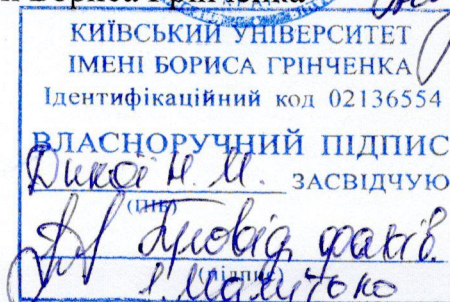 Бориса Грінченка
КИЇВСЬКИЙ УНІВЕРСИТЕТ
ІМЕНІ БОРИСА ГРІНЧЕНКА
Ідентифікаційний код 02136554
ВЛАСНОРУЧНИЙ ПІДПИС
Дикої Н. М. ЗАСВІДЧУЮ
(ПІБ)
Провід. фахів.
(підпис)